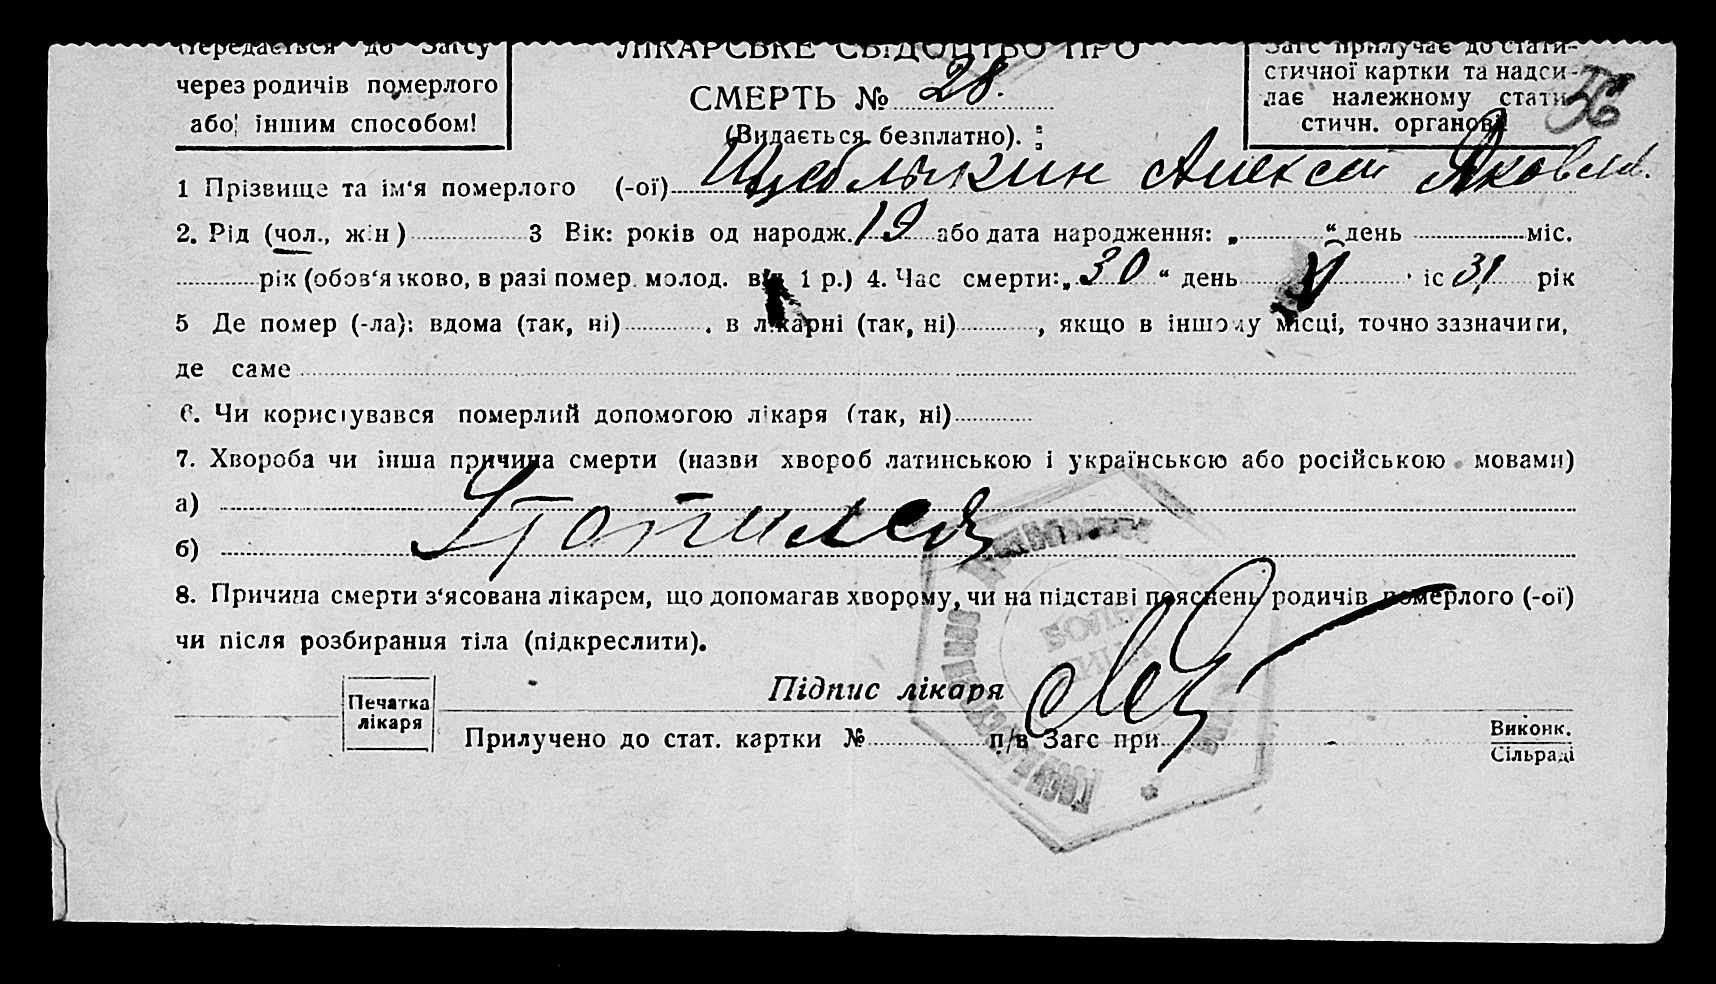 Передається до Загсу
через родичів померлого
або іншим способом!
ЛІКАРСЬКЕ СВІДОЦТВО ПРО
СМЕРТЬ № 28.
(Видається безплатно).
Загс прилучає до стати-
стичної картки та надси-
лає належному стати-
стичн. органові.
56
1 Прізвище та ім'я померлого (-ої) Щеблыкин Алексей Яковлев.
2. Рід (чол., жін) 3 Вік: років од народж. 19 або дата народження: „ “ день міс.
рік (обов'язково, в разі помер. молод. від 1 р.) 4. Час смерти: „ 30 “ день VI міс 31 рік
5 Де помер (-ла): вдома (так, ні) , в лікарні (так, ні) , якщо в іншому місці, точно зазначити,
де саме
6. Чи користувався померлий допомогою лікаря (так, ні)
7. Хвороба чи інша причина смерти (назви хвороб латинською і українською або російською мовами)
а)
Утопился
б)
8. Причина смерти з'ясована лікарем, що допомагав хворому, чи на підставі пояснень родичів померлого (-ої)
чи після розбирання тіла (підкреслити).
Печатка
лікаря
Підпис лікаря
Прилучено до стат. картки № п/в Загс при
Виконк.
Сільраді